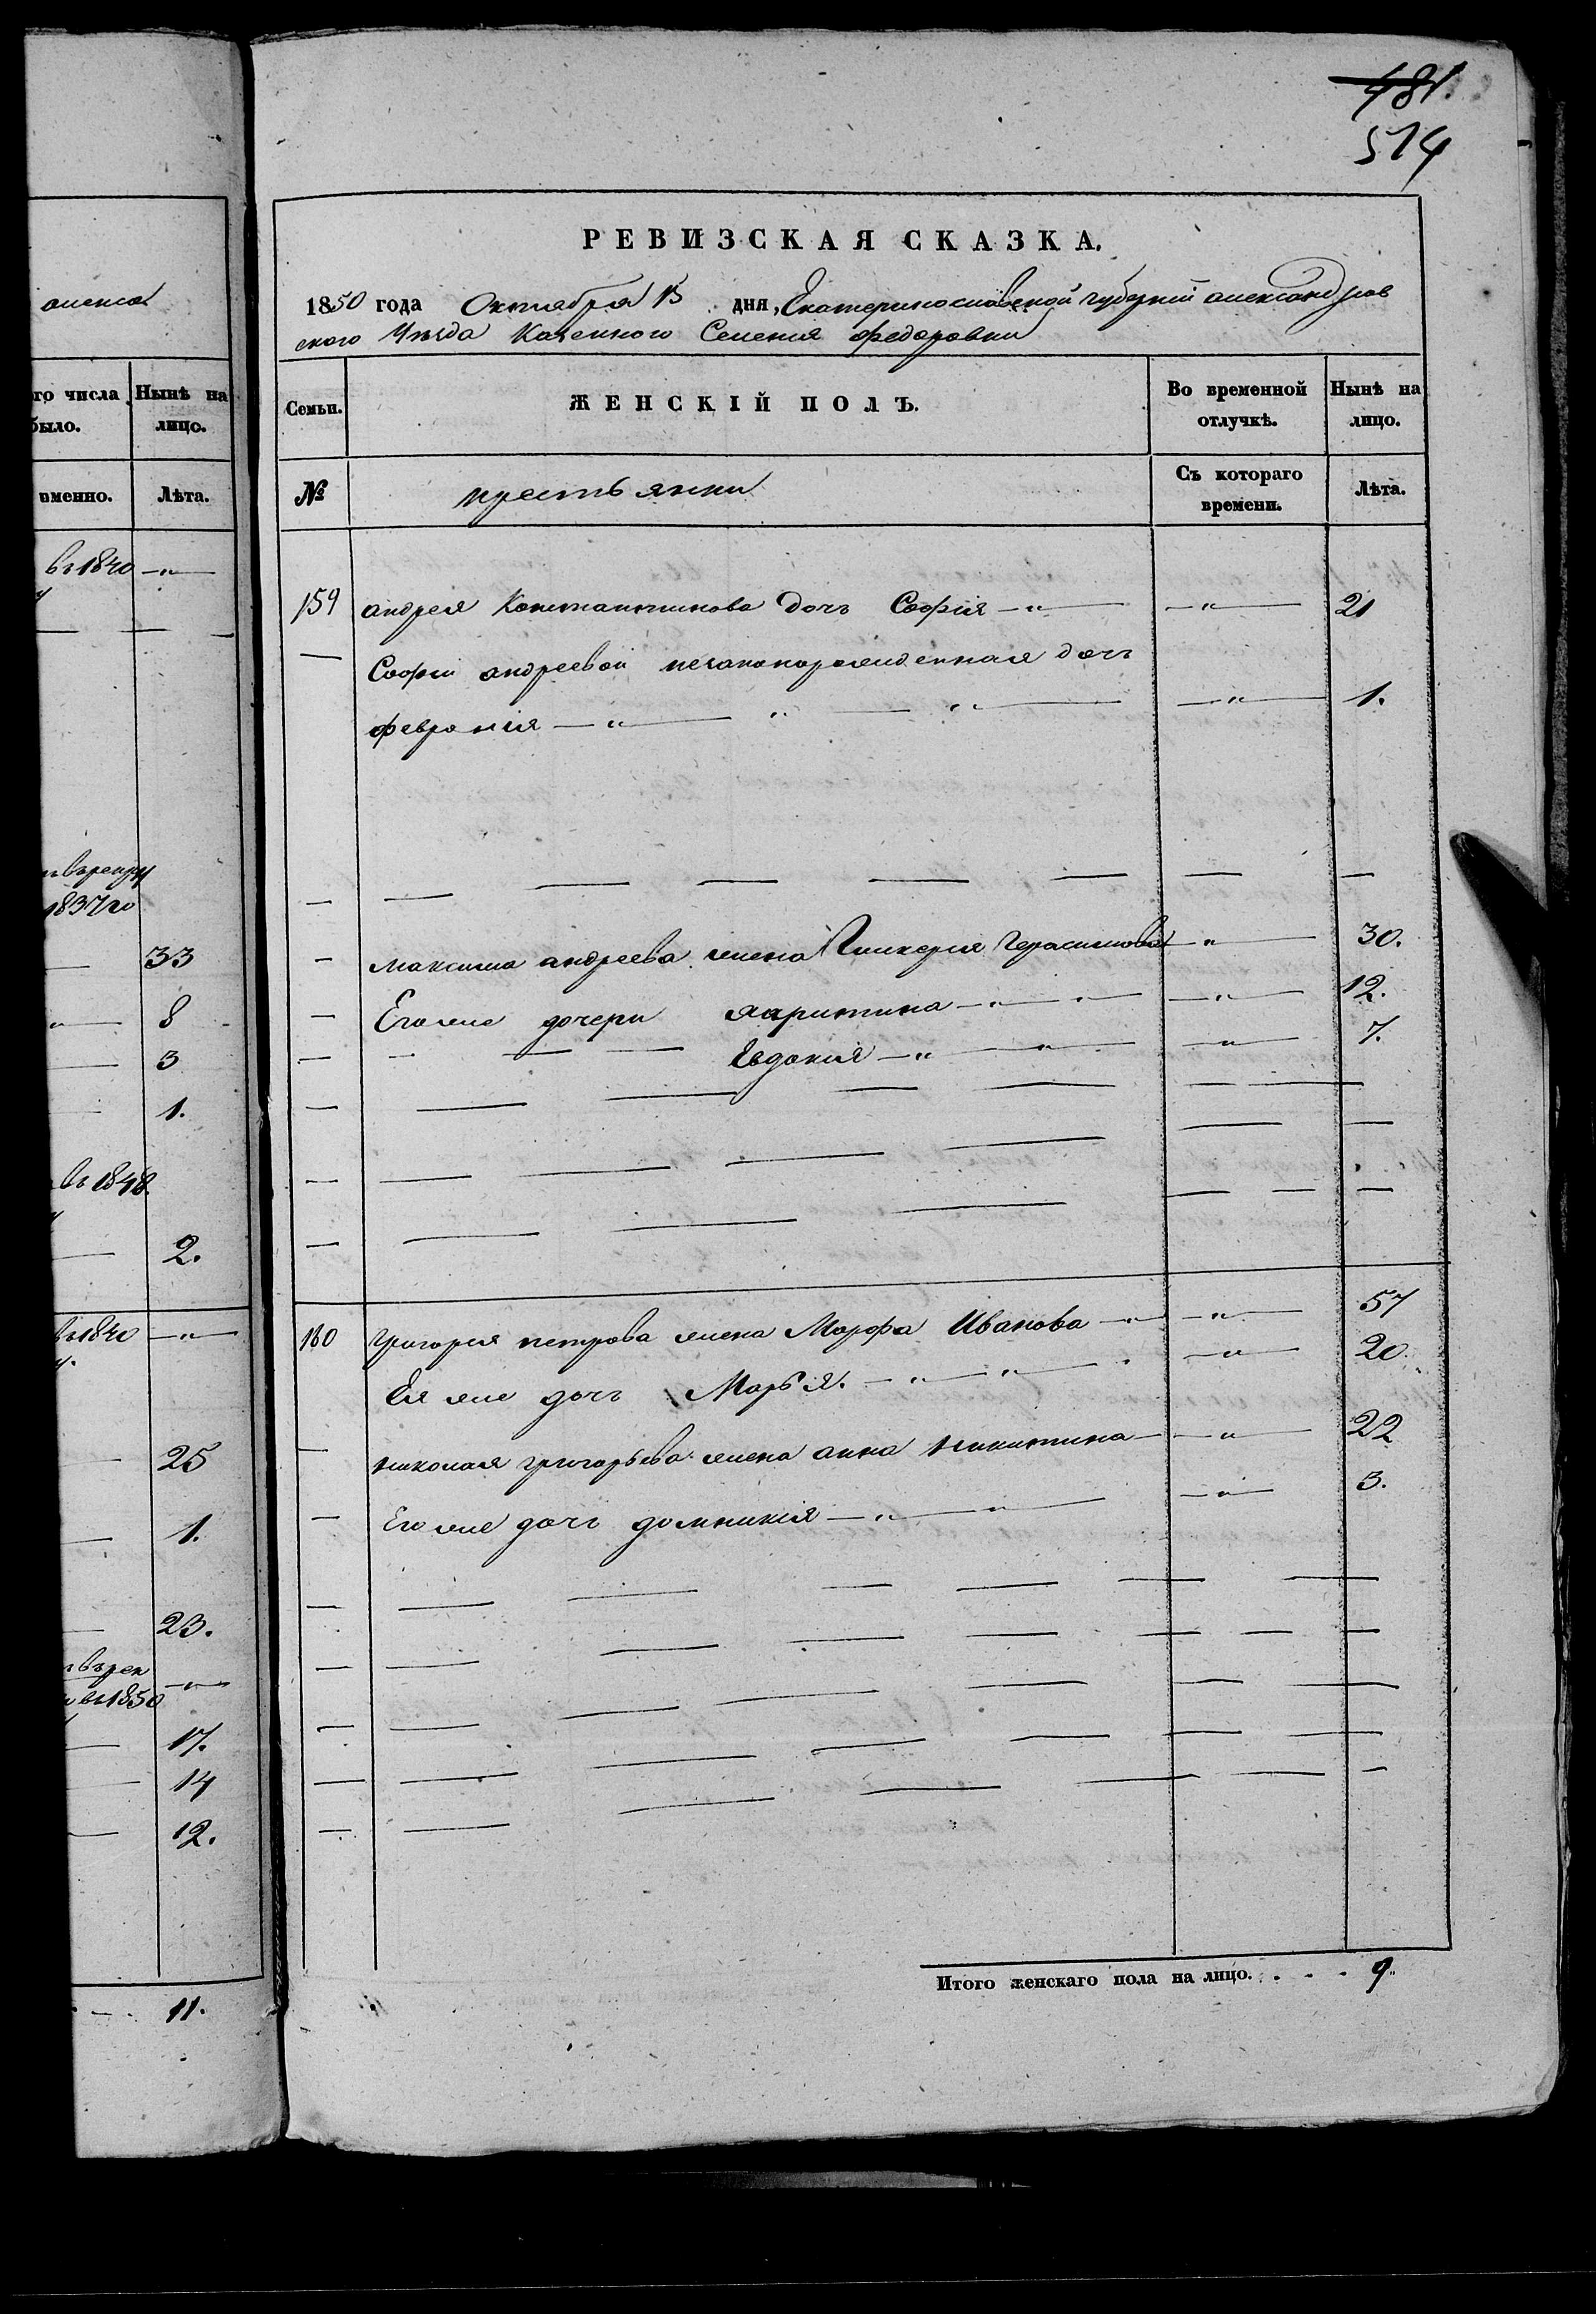 аленсо
го числа Нынѣ на
было. лицо.
именно. Лѣта.
въ 1840 —"—
1837го
33
8
3
1.
въ 1848
2.
въ 1840 —"—
25
1.
23.
въ 1850 —"—
17.
14
12.
11.
481.
514
РЕВИЗСКАЯ СКАЗКА.
1850 года Октября 13 дня, Екатеринославской губерніи александров
ского Уѣзда Казенного Селения федоровки
Семьи. ЖЕНСКІЙ ПОЛЪ. Во временной отлучкѣ. Нынѣ на лицо.
№ крестьянки Съ котораго времени. Лѣта.
159 андрея Константинова дочь Софія —"— —"— 21
— Софіи андреевой незаконорожденная дочь
феврония —"— " — "— —"— 1.
— максима андреева жена Гликерия Герасимова —"— 30.
— Его же дочери Харитина —"— " — —"— 12.
— — — — Евдокия —"— "— —"— 7.
160 григория петрова жена Марфа Иванова —"— —"— 57
Ея же дочь Марья. —"— "— —"— 20.
— николая григорьева жена анна никитина — —"— 22
— Его же дочь домникия —"— "— —"— 3.
Итого женскаго пола на лицо. . . . . 9.